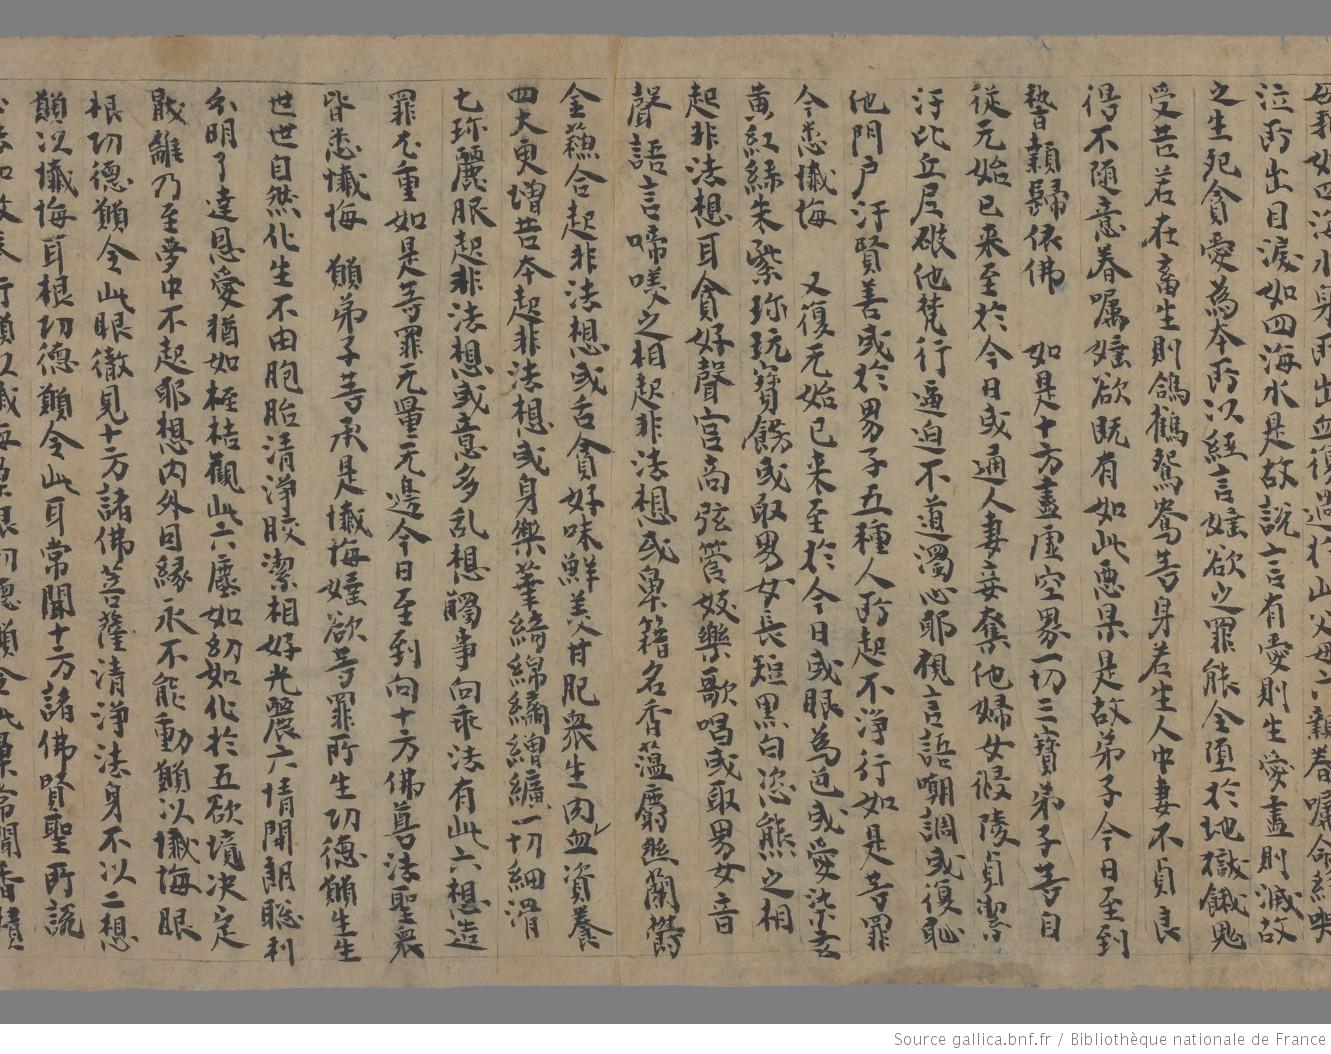 母乳如四海水身所出血復過於此父母六親眷屬命終哭
泣所出目淚如四海水是故説言有愛則生愛盡則滅故
之生死貪愛為本所以經言婬欲之罪能令墮於地獄餓鬼
受苦若在畜生則鴿鶴鴛鴦等身若生人中妻不貞良
得不隨意眷属婬欲既有如此惡果是故弟子今日至到
誓顙歸依佛 如是十方盡虛空界一切三寶弟子等自
從元始已来至於今日或通人妻妾奪他婦女侵陵貞潔
汙比丘尼破他梵行逼迫不道濁心邪視言語嘲調或復恥
他門戶汙賢善或於男子五種人所起不淨行如是等罪
今悉懺悔 又復元始已来至於今日或眼為色或愛染玄
黄紅綠朱紫珎玩寶餝或取男女長短黒白恣態之相
起非法想耳貪好聲宫商弦管妓樂歌唱或取男女音
聲語言啼嘆之相起非法想或鼻籍名香蒀麝然蘭欝
金蘓合起非法想或舌貪好味鮮美甘肥衆生肉血資養
四大更增苦本起非法想或身樂華綺綿繡繒纊一切細滑
七珎麗服起非法想或意多乱想觸事向乖法有此六想造
罪尤重如是等罪无量无邊今日至到向十方佛尊法聖衆
皆悉懺悔 願弟子等承是懺悔婬欲等罪所生功德願生生
世世自然化生不由胞胎清淨皎潔相好光麗六情開朗聡利
分明了達恩愛猶如桎梏觀此六塵如幻如化於五欲境决定
猒離乃至夢中不起耶想内外因緣永不能動願以懺悔眼
根功德願令此眼徹見十方諸佛菩薩清淨法身不以二想
願以懺悔耳根功德願令此耳常聞十方諸佛賢聖所説
正法如教奉行願以懺悔鼻根功德願令此鼻常聞香積
Source gallica.bnf.fr / Bibliothèque nationale de France